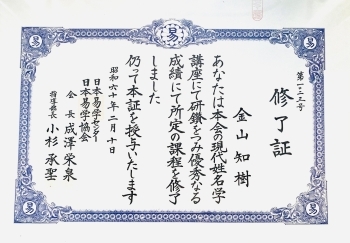 易
第一二三号
修了証
金山知樹
あなたは本会の現代姓名学
講座にて研鑽をつみ優秀なる
成績にて所定の課程を修了
しました
仍って本証を授与いたします
昭和六十年二月十日
日本易学センター
日本易学協会
会長 成澤栄泉
指導部長 小杉承聖
易
易
易
易